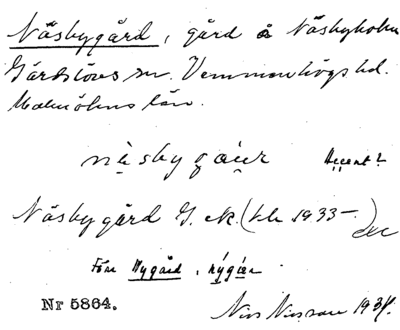 Näsbygård, gård å Näsbyholm
Gärdslövs sn. Vemmenhögs hd.
Malmöhus län.
näsbygáur Accent?
Näsbygård G. ek. (bl. 1933-
Före Nygård, nýgár
Nr 5864.
Nils Nilsson 1934.